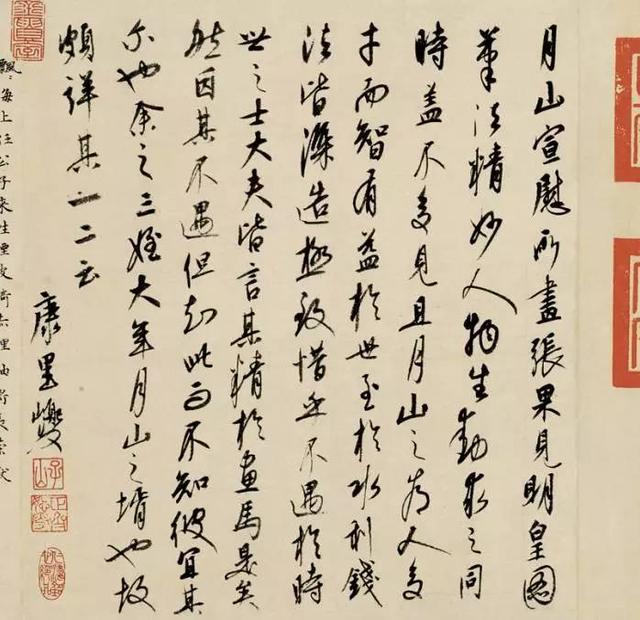 月山宣慰所畫張果見明皇圖
筆法精妙人物生動求之同
時蓋不多見且月山之為人多
才而智有益於世至於水利錢
法皆深造極致惜乎不遇於時
世之士大夫皆言其精於畫馬是矣
然因其不遇但知此而不知彼宜其
尒也余之三姪大年月山之壻也故
頗詳其一二云
康里巎
子山
海上任公子